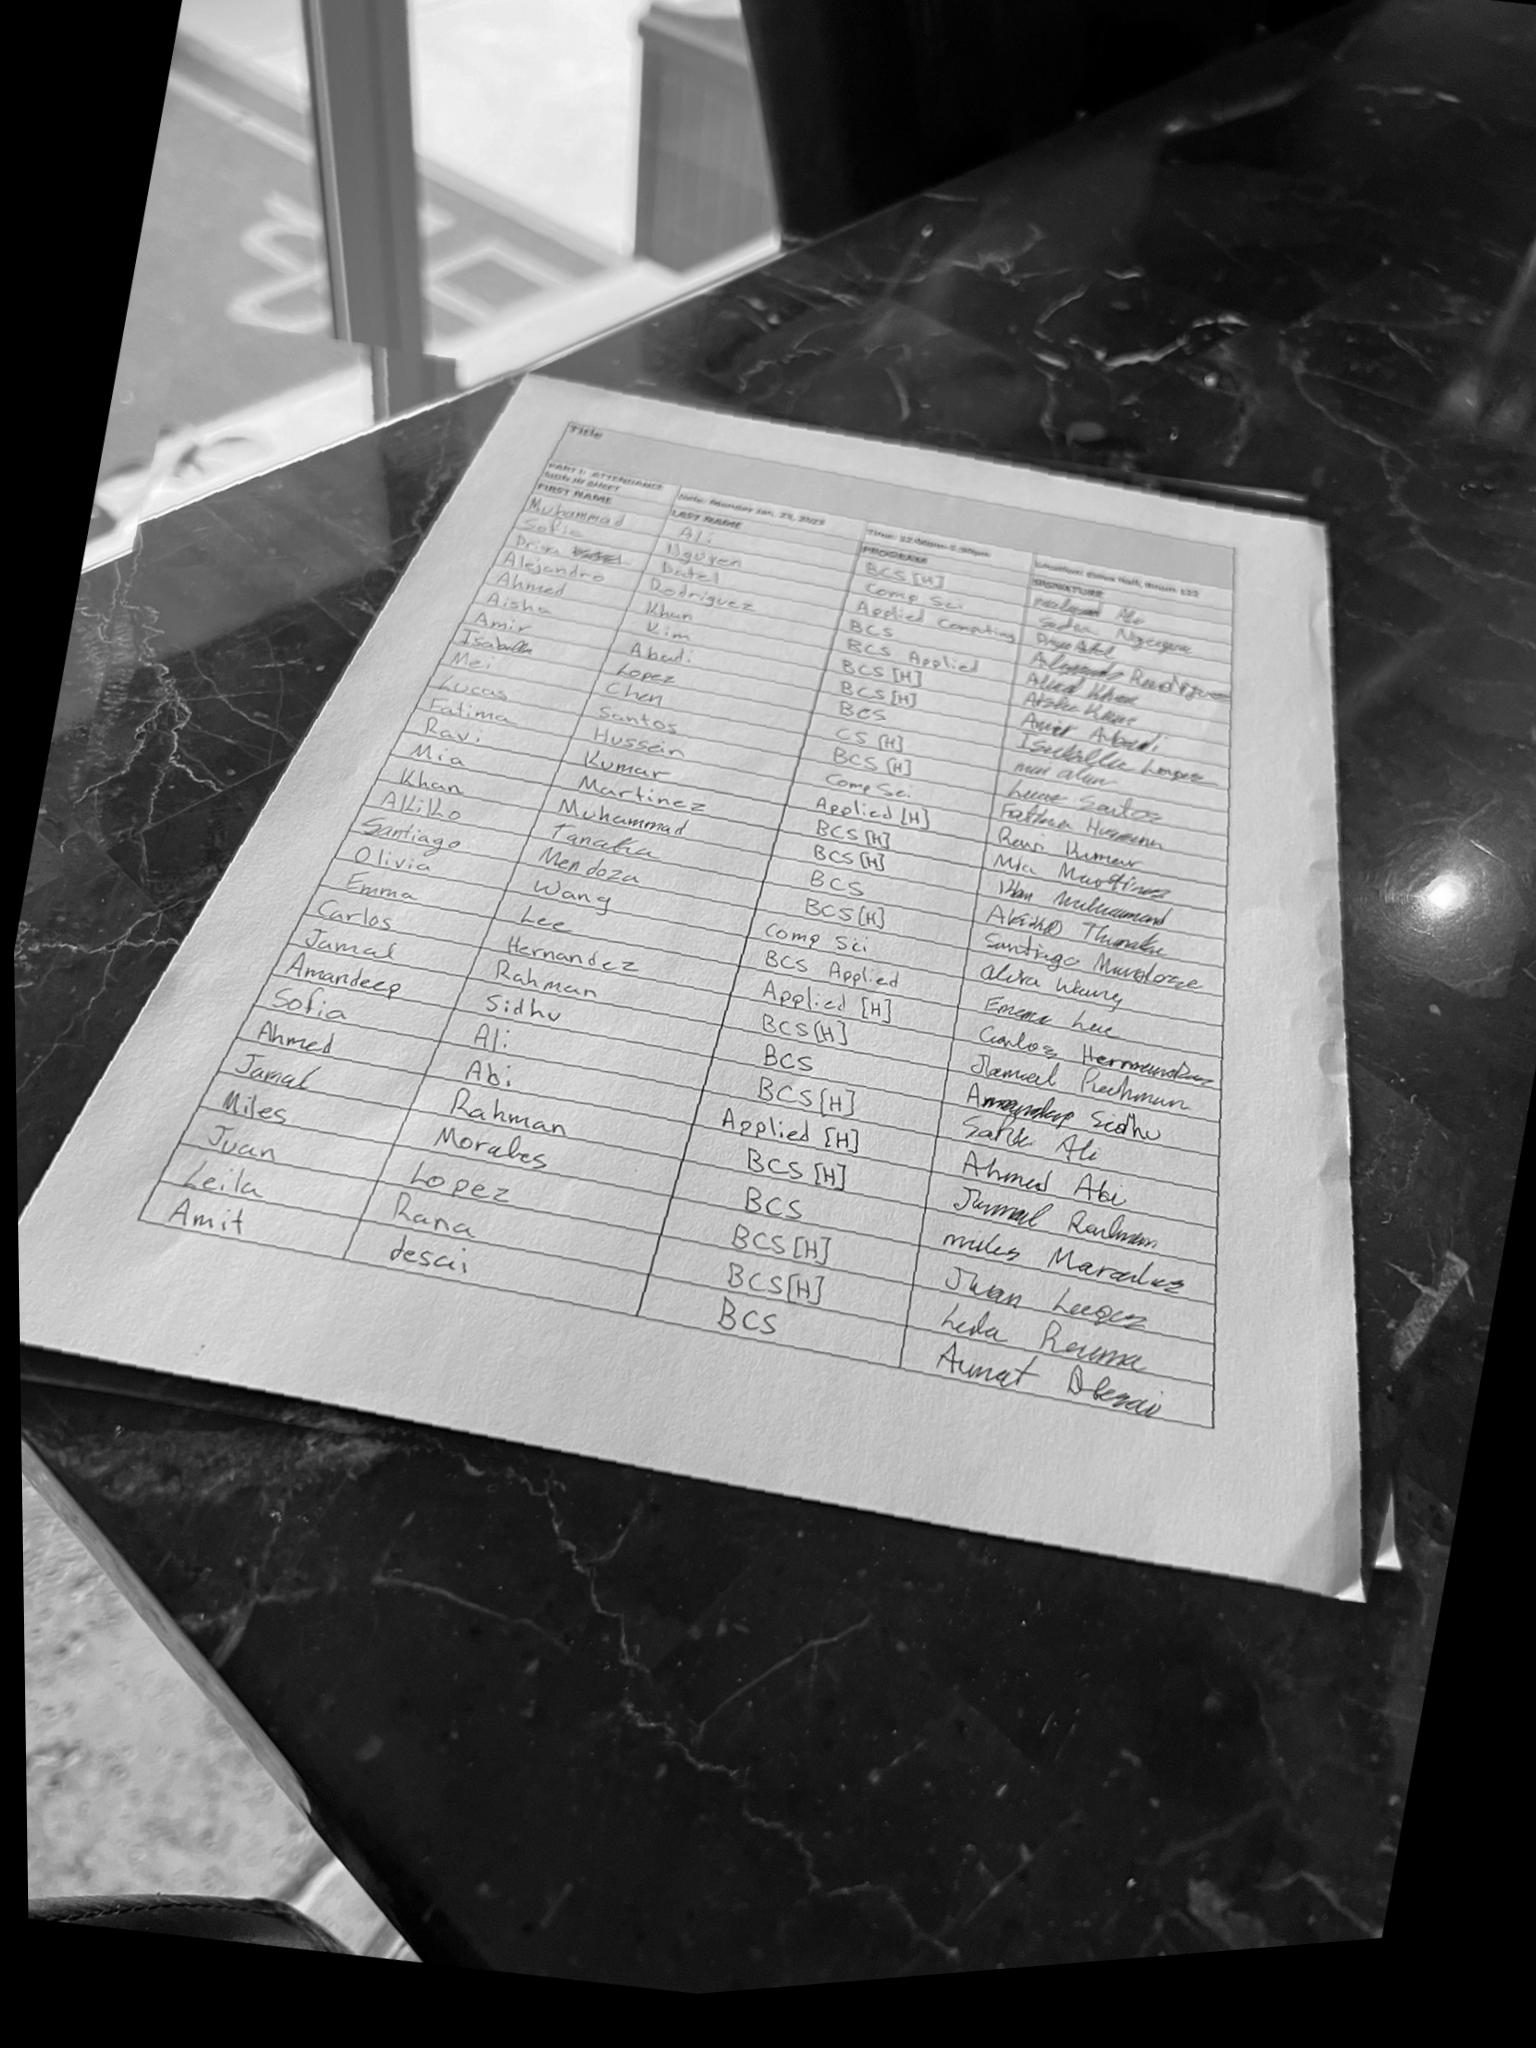 Title
PART I: ATTENDANCE SIGN IN SHEET Date: Monday Jan, 23, 2023 Time: Location: Essex Hall, Room 122
FIRST NAME LAST NAME PROGRAM SIGNATURE
Muhammad Ali BCS [H]
Sofia Nguyen Comp Sci
Priya Patel Applied Computing
Alejandro Rodriguez BCS Alejandro Rodriguez
Ahmed Khan BCS Applied Ahmed Khan
Aisha Kim BCS [H]
Amir Abadi BCS [H] Amir Abadi
Isabella Lopez BCS Isabella Lopez
Mei Chen CS [H]
Lucas Santos BCS [H] Lucas Santos
Fatima Hussein Comp Sci Fatima Hussein
Ravi Kumar Applied [H] Ravi Kumar
Mia Martinez BCS [H] Mia Martinez
Khan Muhammad BCS [H] Khan Muhammad
Akiko Tanaka BCS
Santiago Mendoza BCS [H] Santiago Mendoza
Olivia Wang Comp Sci Wang
Emma Lee BCS Applied Emma Lee
Carlos Hernandez Applied [H] Carlos Hernandez
Jamal Rahman BCS [H] Jamal Rahman
Amandeep Sidhu BCS Amandeep Sidhu
Sofia Ali BCS [H] Ali
Ahmed Abi Applied [H] Ahmed Abi
Jamal Rahman BCS [H] Jamal Rahman
Miles Morales BCS Miles Morales
Juan Lopez BCS [H] Juan Lopez
Leila Rana BCS [H] Leila Rana
Amit desai BCS Amit Desai